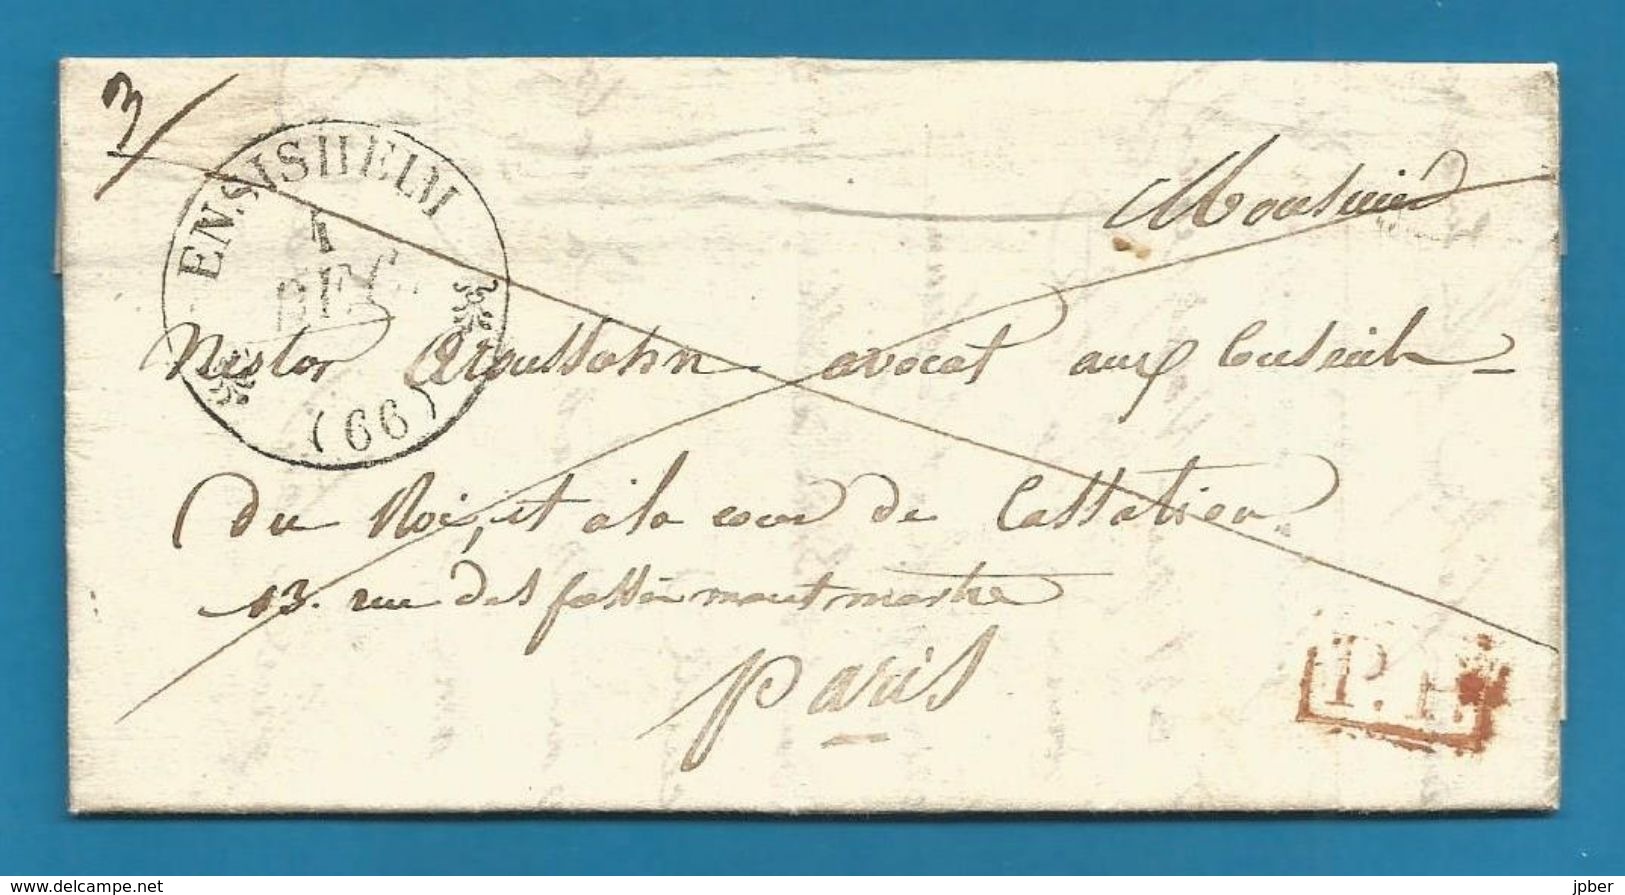 3/
ENSISHEIM
1
DEC.
(66)
Monsieur
Nestor avocat aux Conseils
du Roi, et à la cour de Cassation
13. rue des fossés montmartre
Paris
P.P.
www.delcampe.net
jpber